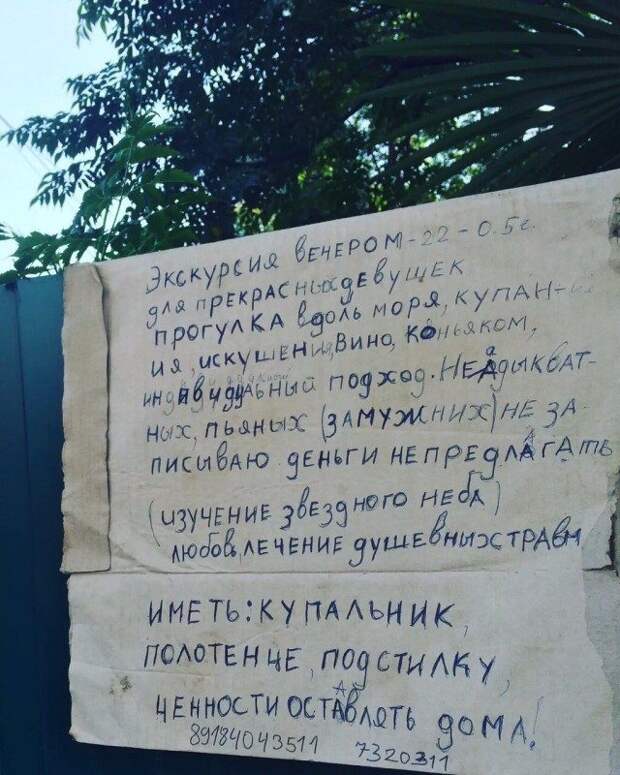 Экскурсия вечером - 22 - 0.5г.
для прекрасных девушек
прогулка вдоль моря, купан-
ия, искушения, вино, коньяком,
индивидуальный подход. Неадыкват-
ных, пьяных (замужних) не за-
писываю деньги не предлагать
(изучение звездного неба)
любовь, лечение душевных травм
Иметь: купальник,
полотенце, подстилку,
ценности оставлять дома!
89184043511 7320311